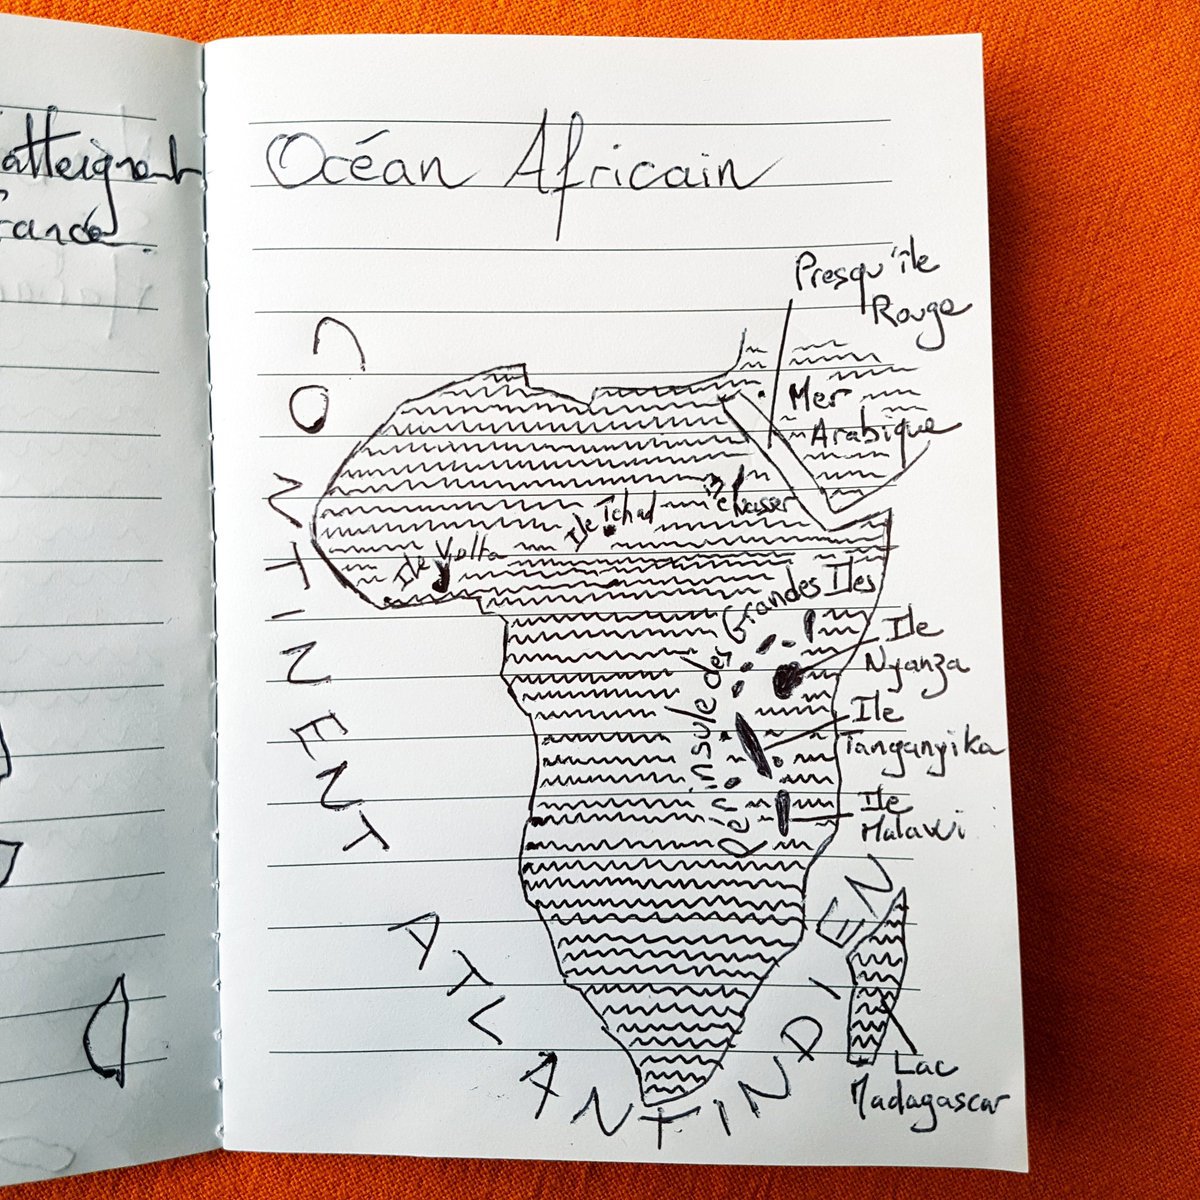 atteignent
france.
Océan Africain
Presqu'île
Rouge
Mer
Arabique
Ile Nasser
Ile Tchad
Ile Volta
Péninsule des Grandes Iles
Ile
Nyanza
Ile
Tanganyika
Ile
Malawi
CONTINENT ATLANTINDIEN
Lac
Madagascar